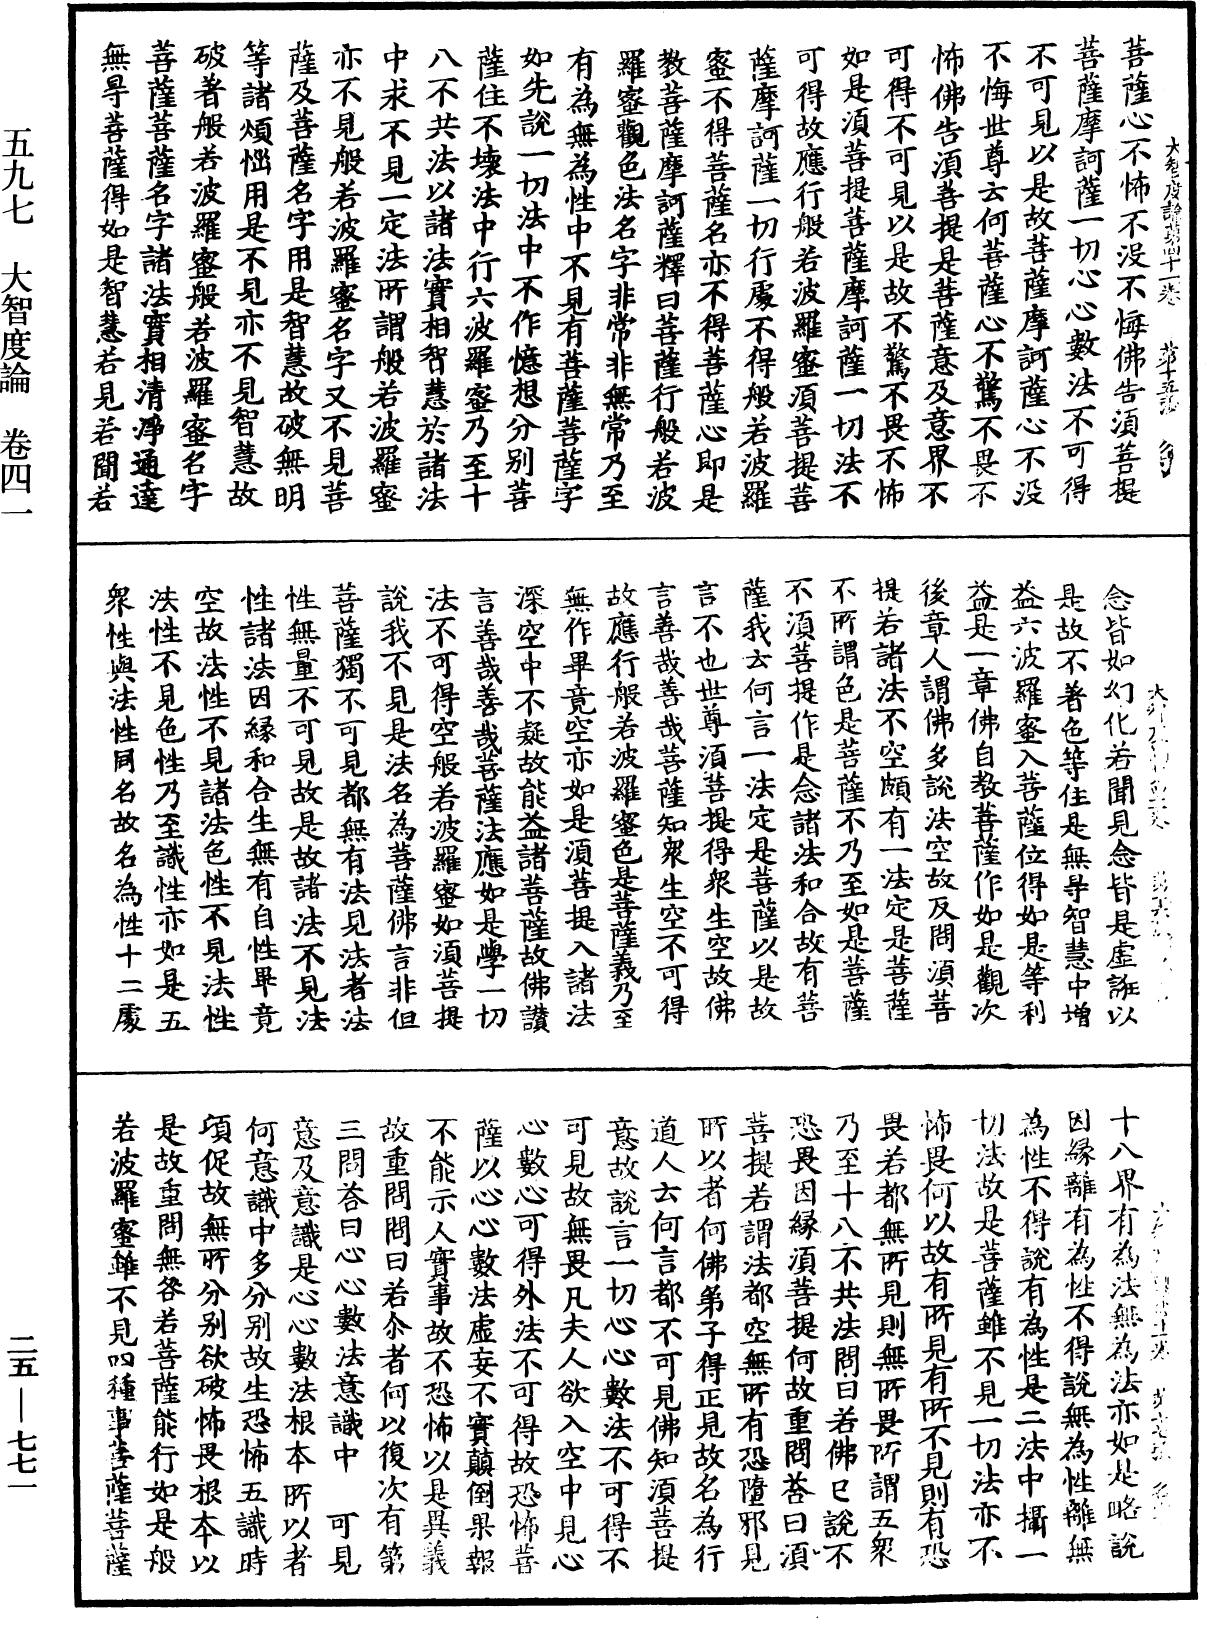 菩薩心不怖不没不悔佛告須菩提
菩薩摩訶薩一切心心數法不可得
不可見以是故菩薩摩訶薩心不没
不悔世尊云何菩薩心不驚不畏不
怖佛告須菩提是菩薩意及意界不
可得不可見以是故不驚不畏不怖
如是須菩提菩薩摩訶薩一切法不
可得故應行般若波羅蜜須菩提菩
薩摩訶薩一切行處不得般若波羅
蜜不得菩薩名亦不得菩薩心即是
教菩薩摩訶薩釋曰菩薩行般若波
羅蜜觀色法名字非常非無常乃至
有為無為性中不見有菩薩菩薩字
如先說一切法中不作憶想分别菩
薩住不壞法中行六波羅蜜乃至十
八不共法以諸法實相智慧於諸法
中求不見一定法所謂般若波羅蜜
亦不見般若波羅蜜名字又不見菩
薩及菩薩名字用是智慧故破無明
等諸煩惱用是不見亦不見智慧故
破著般若波羅蜜般若波羅蜜名字
菩薩菩薩名字諸法實相清淨通達
無㝵菩薩得如是智慧若見若聞若
念皆如幻化若聞見念皆是虛誑以
是故不著色等住是無㝵智慧中增
益六波羅蜜入菩薩位得如是等利
益是一章佛自教菩薩作如是觀次
後章人謂佛多說法空故反問須菩
提若諸法不空頗有一法定是菩薩
不所謂色是菩薩不乃至如是菩薩
不須菩提作是念諸法和合故有菩
薩我云何言一法定是菩薩以是故
言不也世尊須菩提得衆生空故佛
言善哉善哉菩薩知衆生空不可得
故應行般若波羅蜜色是菩薩義乃至
無作畢竟空亦如是須菩提入諸法
深空中不疑故能益諸菩薩故佛讃
言善哉善哉菩薩法應如是學一切
法不可得空般若波羅蜜如須菩提
說我不見是法名為菩薩佛言非但
菩薩獨不可見都無有法見法者法
性無量不可見故是故諸法不見法
性諸法因緣和合生無有自性畢竟
空故法性不見諸法色性不見法性
法性不見色性乃至識性亦如是五
衆性與法性同名故名為性十二處
十八界有為法無為法亦如是略說
因緣離有為性不得說無為性離無
為性不得說有為性是二法中攝一
切法故是菩薩雖不見一切法亦不
怖畏何以故有所見有所不見則有恐
畏若都無所見則無所畏所謂五衆
乃至十八不共法問曰若佛已說不
恐畏因緣須菩提何故重問荅曰須
菩提若謂法都空無所有恐墮邪見
所以者何佛弟子得正見故名為行
道人云何言都不可見佛知須菩提
意故說言一切心心數法不可得不
可見故無畏凡夫人欲入空中見心
心數心可得外法不可得故恐怖菩
薩以心心數法虛妄不實顛倒果報
不能示人實事故不恐怖以是異義
故重問問曰若尒者何以復次有第
三問荅曰心心數法意識中 可見
意及意識是心心數法根本所以者
何意識中多分别故生恐怖五識時
頃促故無所分别欲破怖畏根本以
是故重問無咎若菩薩能行如是般
若波羅蜜雖不見四種事菩薩菩薩
五九七 大智度論 卷四一
二五—七七一